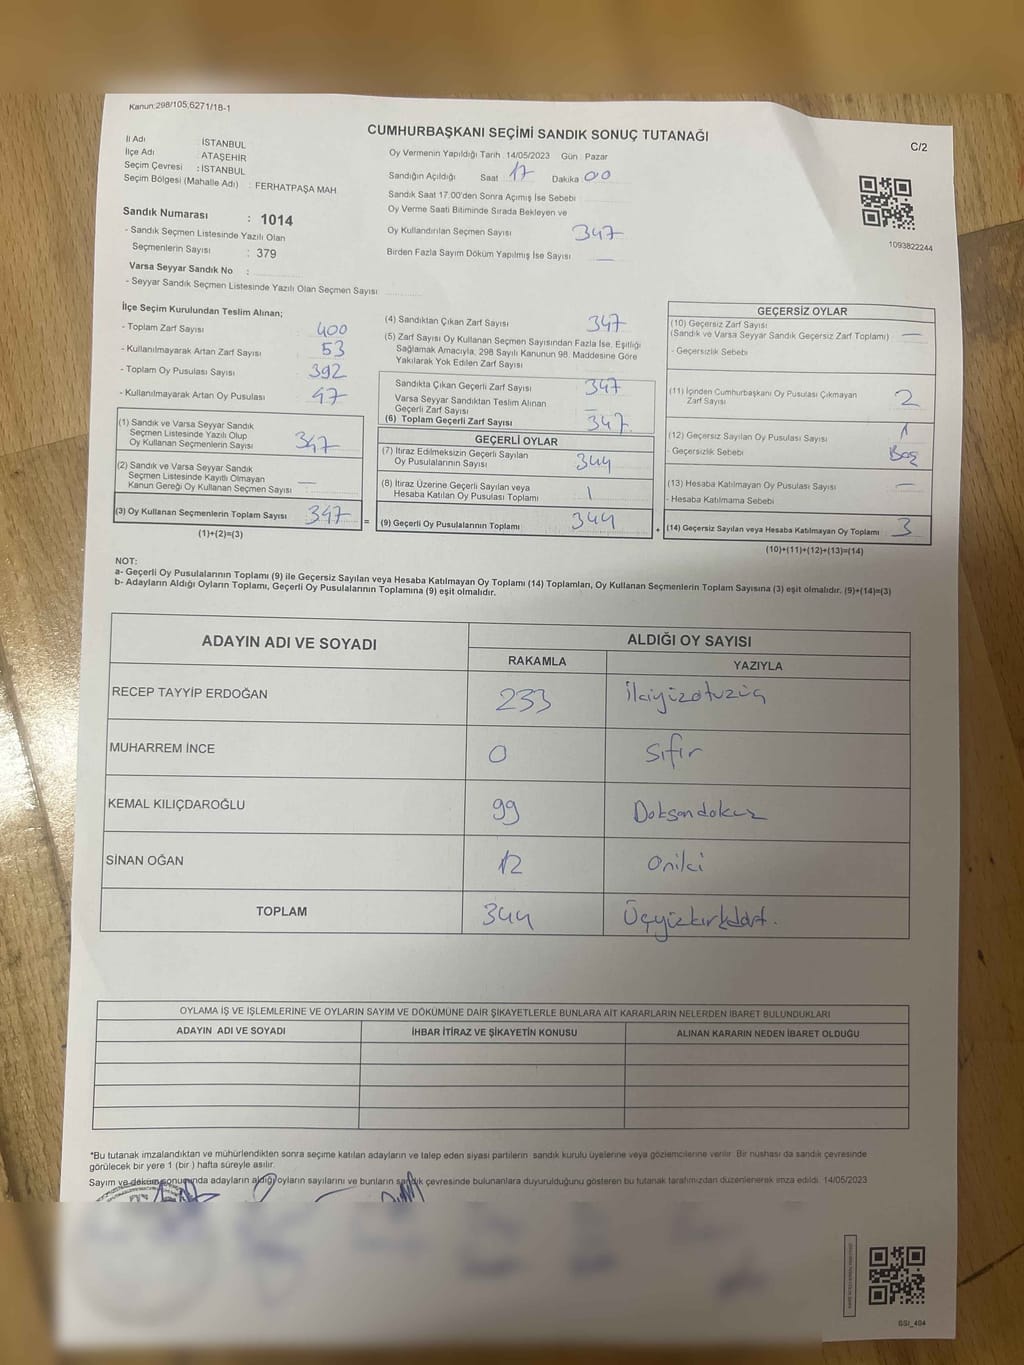 Kanun:298/105,6271/18-1
CUMHURBAŞKANI SEÇİMİ SANDIK SONUÇ TUTANAĞI
C/2
İl Adı : İSTANBUL
İlçe Adı : ATAŞEHİR
Seçim Çevresi : İSTANBUL
Seçim Bölgesi (Mahalle Adı) : FERHATPAŞA MAH
Sandık Numarası : 1014
- Sandık Seçmen Listesinde Yazılı Olan
Seçmenlerin Sayısı : 379
Varsa Seyyar Sandık No :
- Seyyar Sandık Seçmen Listesinde Yazılı Olan Seçmen Sayısı
Oy Vermenin Yapıldığı Tarih 14/05/2023 Gün Pazar
Sandığın Açıldığı Saat 17 Dakika 00
Sandık Saat 17:00'den Sonra Açımış İse Sebebi
Oy Verme Saati Bitiminde Sırada Bekleyen ve
Oy Kullandırılan Seçmen Sayısı 347
Birden Fazla Sayım Döküm Yapılmış İse Sayısı —
1093822244
İlçe Seçim Kurulundan Teslim Alınan;
- Toplam Zarf Sayısı 400
- Kullanılmayarak Artan Zarf Sayısı 53
- Toplam Oy Pusulası Sayısı 392
- Kullanılmayarak Artan Oy Pusulası 47
(1) Sandık ve Varsa Seyyar Sandık
Seçmen Listesinde Yazılı Olup
Oy Kullanan Seçmenlerin Sayısı 347
(2) Sandık ve Varsa Seyyar Sandık
Seçmen Listesinde Kayıtlı Olmayan
Kanun Gereği Oy Kullanan Seçmen Sayısı —
(3) Oy Kullanan Seçmenlerin Toplam Sayısı 347 =
(1)+(2)=(3)
(4) Sandıktan Çıkan Zarf Sayısı 347
(5) Zarf Sayısı Oy Kullanan Seçmen Sayısından Fazla İse, Eşitliği
Sağlamak Amacıyla, 298 Sayılı Kanunun 98. Maddesine Göre
Yakılarak Yok Edilen Zarf Sayısı
Sandıkta Çıkan Geçerli Zarf Sayısı 347
Varsa Seyyar Sandıktan Teslim Alınan
Geçerli Zarf Sayısı —
(6) Toplam Geçerli Zarf Sayısı 347
GEÇERLİ OYLAR
(7) İtiraz Edilmeksizin Geçerli Sayılan
Oy Pusulalarının Sayısı 344
(8) İtiraz Üzerine Geçerli Sayılan veya
Hesaba Katılan Oy Pusulası Toplamı
(9) Geçerli Oy Pusulalarının Toplamı 344 +
GEÇERSİZ OYLAR
(10) Geçersiz Zarf Sayısı
(Sandık ve Varsa Seyyar Sandık Geçersiz Zarf Toplamı) —
- Geçersizlik Sebebi
(11) İçinden Cumhurbaşkanı Oy Pusulası Çıkmayan
Zarf Sayısı 2
(12) Geçersiz Sayılan Oy Pusulası Sayısı 1
- Geçersizlik Sebebi Boş
(13) Hesaba Katılmayan Oy Pusulası Sayısı —
- Hesaba Katılmama Sebebi
(14) Geçersiz Sayılan veya Hesaba Katılmayan Oy Toplamı 3
(10)+(11)+(12)+(13)=(14)
NOT:
a- Geçerli Oy Pusulalarının Toplamı (9) ile Geçersiz Sayılan veya Hesaba Katılmayan Oy Toplamı (14) Toplamları, Oy Kullanan Seçmenlerin Toplam Sayısına (3) eşit olmalıdır. (9)+(14)=(3)
b- Adayların Aldığı Oyların Toplamı, Geçerli Oy Pusulalarının Toplamına (9) eşit olmalıdır.
ADAYIN ADI VE SOYADI
ALDIĞI OY SAYISI
RAKAMLA YAZIYLA
RECEP TAYYİP ERDOĞAN 233 ikiyüzotuzüç
MUHARREM İNCE 0 sıfır
KEMAL KILIÇDAROĞLU 99 Doksandokuz
SİNAN OĞAN 12 oniki
TOPLAM 344 Üçyüzkırkdört.
OYLAMA İŞ VE İŞLEMLERİNE VE OYLARIN SAYIM VE DÖKÜMÜNE DAİR ŞİKAYETLERLE BUNLARA AİT KARARLARIN NELERDEN İBARET BULUNDUKLARI
ADAYIN ADI VE SOYADI İHBAR İTİRAZ VE ŞİKAYETİN KONUSU ALINAN KARARIN NEDEN İBARET OLDUĞU
*Bu tutanak imzalandıktan ve mühürlendikten sonra seçime katılan adayların ve talep eden siyasi partilerin sandık kurulu üyelerine veya gözlemcilerine verilir. Bir nüshası da sandık çevresinde
görülecek bir yere 1 (bir ) hafta süreyle asılır.
Sayım ve döküm sonunda adayların aldığı oyların sayılarını ve bunların sandık çevresinde bulunanlara duyurulduğunu gösteren bu tutanak tarafımızdan düzenlenerek imza edildi. 14/05/2023